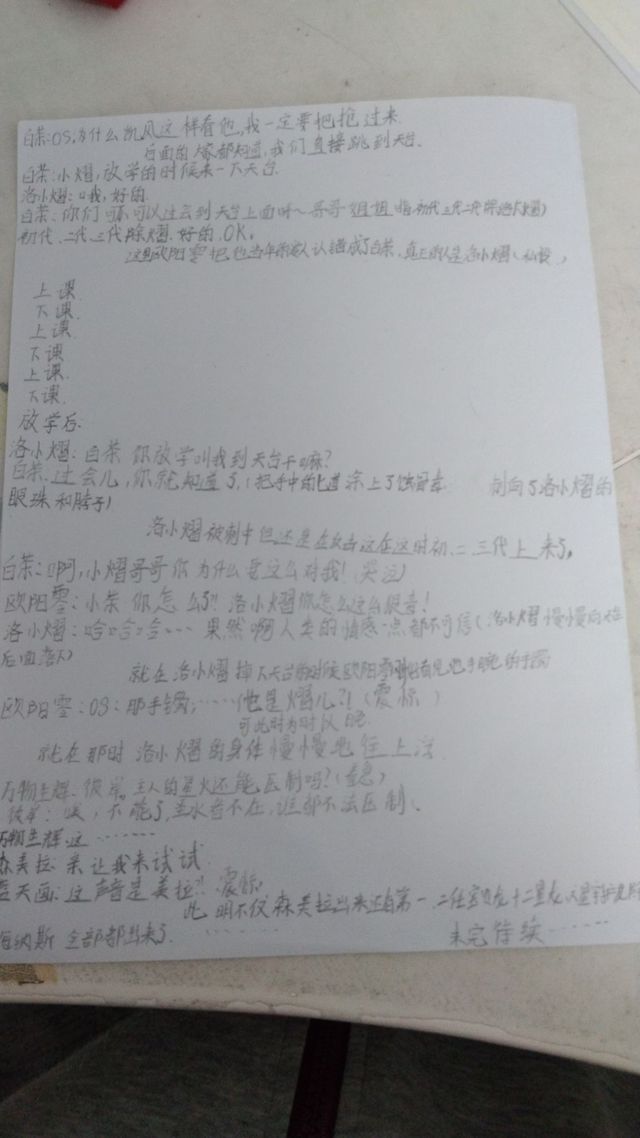 白茶:OS,为什么凯风这样看他,我一定要把他抢过来.
后面的大家都知道,我们直接跳到天台.
白茶:小熠,放学的时候来一下天台
洛小熠:哦,好的.
白茶:你们可不可以过会到天台上面呀~哥哥姐姐
初代、二代、三代除熠:好的,OK。
这里欧阳零把他当年的救人认错成了白茶,真正的人是洛小熠(私设)
上课.
下课.
上课.
下课
上课.
下课.
放学后:
洛小熠:白茶 你放学叫我到天台干嘛?
白茶:过会儿,你就知道了,(把手中的匕首涂上了 刺向了洛小熠的
眼珠和脖子)
洛小熠被刺中但还是在 这在这时初、二、三代上来了。
白茶:啊,小熠哥哥你为什么要这么对我!(哭泣)
欧阳零:小茶你怎么了?!洛小熠你怎么这么狠毒!
洛小熠:哈哈哈…… 果然啊人类的情感一点都不可信(洛小熠慢慢向
后面落下)
就在洛小熠掉下天台的时候欧阳零 看见他手腕的手镯
欧阳零:OS:那手镯……他是熠儿?!(震惊)
可此时为时以晚
就在那时 洛小熠的身体慢慢地往上浮
万物生辉:彼岸,主人的星火还能压制吗?(着急)
彼岸:唉,不能了,圣水都不在,谁都不法压制、
万物生辉:这……
森美拉:来让我来试试
蓝天画:这声音是美拉?!震惊
此 明不仅森美拉出来还有第一、二任
全部都出来了 未完待续……